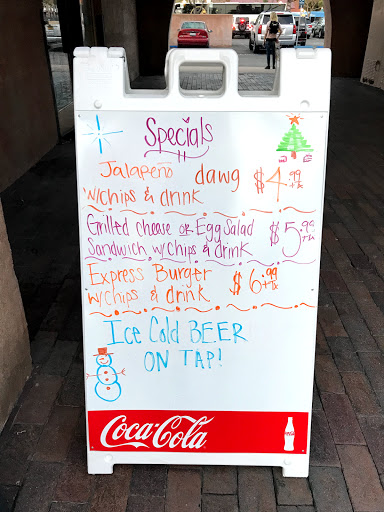 Specials
Jalapeño dawg $4.99 +tx
w/chips & drink
Grilled cheese or Egg Salad $5.99 +tx
Sandwich w/chips & drink
Express Burger $6.99 +tx
w/chips & drink
Ice Cold BEER
ON TAP!
Coca-Cola